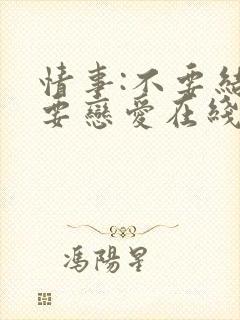 情事:不要結
要戀愛在綫
馮陽星